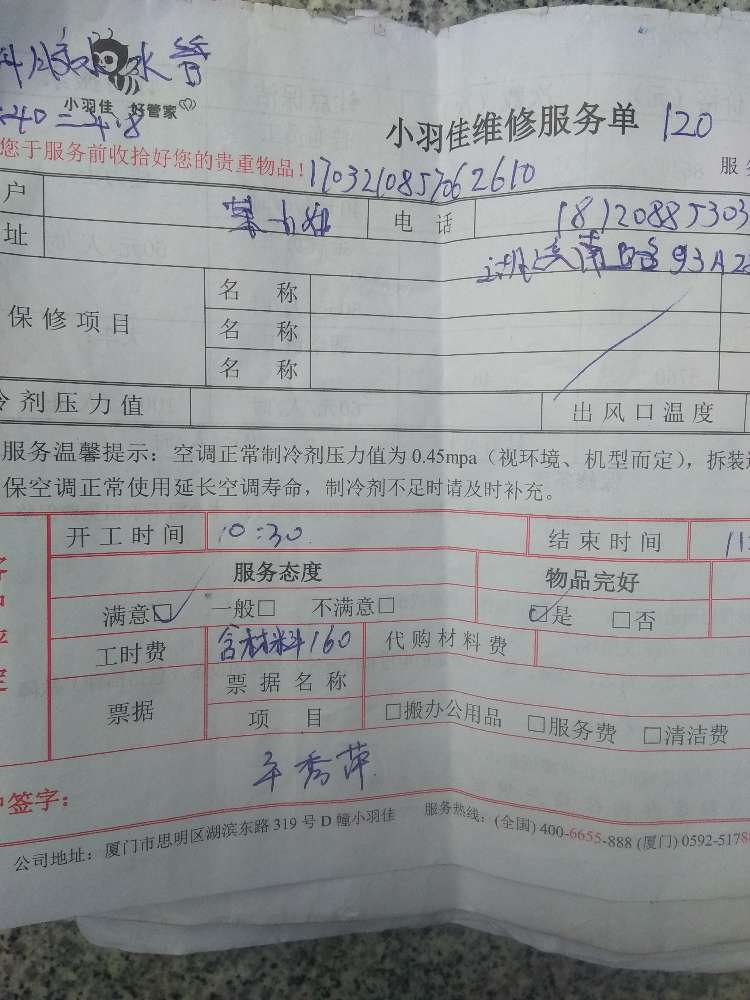 水管
小羽佳 好管家
40=4.8
小羽佳维修服务单 120
您于服务前收拾好您的贵重物品! 1703210857062610 服务
户 电话 18120885303
址 南路93A2
保修项目 名称
名称
名称
冷剂压力值 出风口温度
服务温馨提示：空调正常制冷剂压力值为0.45mpa（视环境、机型而定），拆装
保空调正常使用延长空调寿命，制冷剂不足时请及时补充。
开工时间 10:30 结束时间 11
服务态度 物品完好
满意☑ 一般□ 不满意□ ☑是 □否
工时费 含材料160 代购材料费
票据 票据名称
项目 □搬办公用品 □服务费 □清洁费
秀萍
签字：
公司地址：厦门市思明区湖滨东路319号D幢小羽佳 服务热线：(全国) 400-6655-888 (厦门) 0592-5178